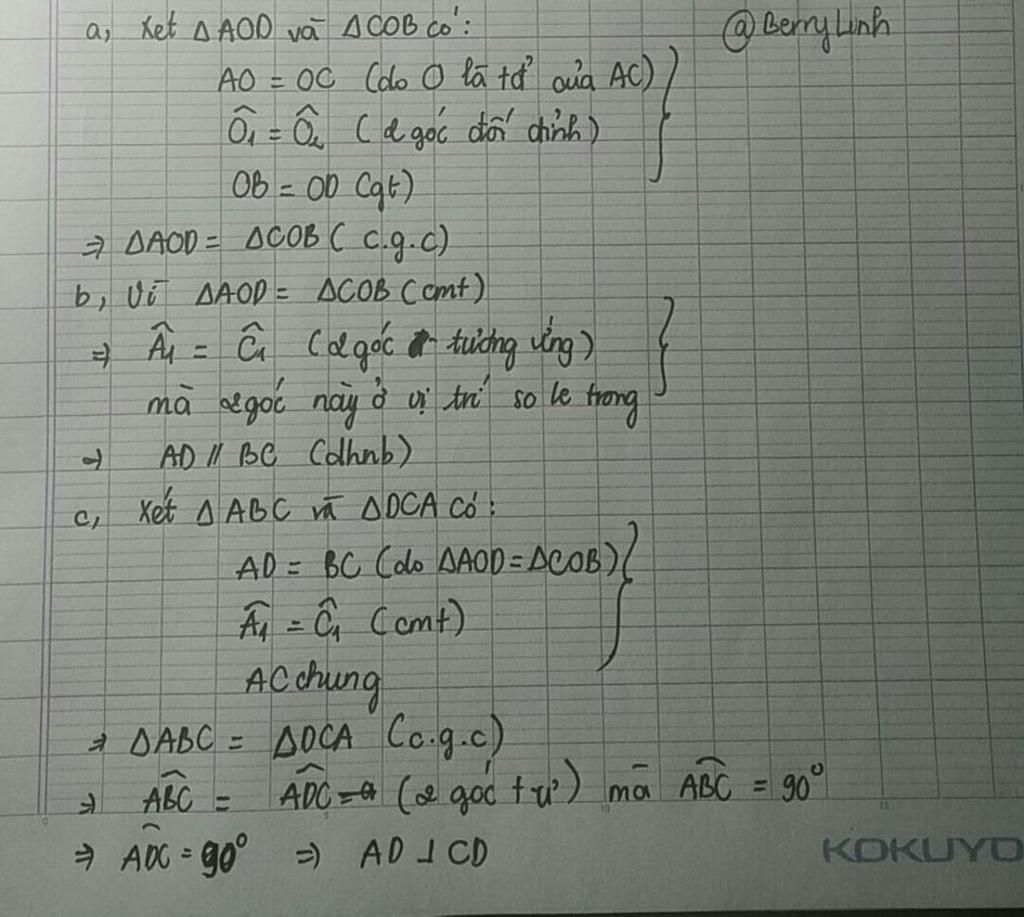 a, Xét ΔAOD và ΔCOB có: @BerryLinh
AO = OC (do O là tđ của AC)
Ô₁ = Ô₂ (2 góc đối đỉnh)
OB = OD (gt)
⇒ ΔAOD = ΔCOB ( c.g.c)
b, Vì ΔAOD = ΔCOB (cmt)
⇒ Â₁ = Ĉ₁ (2 góc tương ứng)
mà 2 góc này ở vị trí so le trong
⇒ AD // BC (dhnb)
c, Xét Δ ABC và ΔDCA có:
AD = BC (do ΔAOD = ΔCOB)
Â₁ = Ĉ₁ (cmt)
AC chung
⇒ ΔABC = ΔDCA (c.g.c)
⇒ ABC̑ = ADC̑ (2 góc tư) mà ABC̑ = 90°
⇒ ADC̑ = 90° ⇒ AD ⊥ CD
KOKUYO